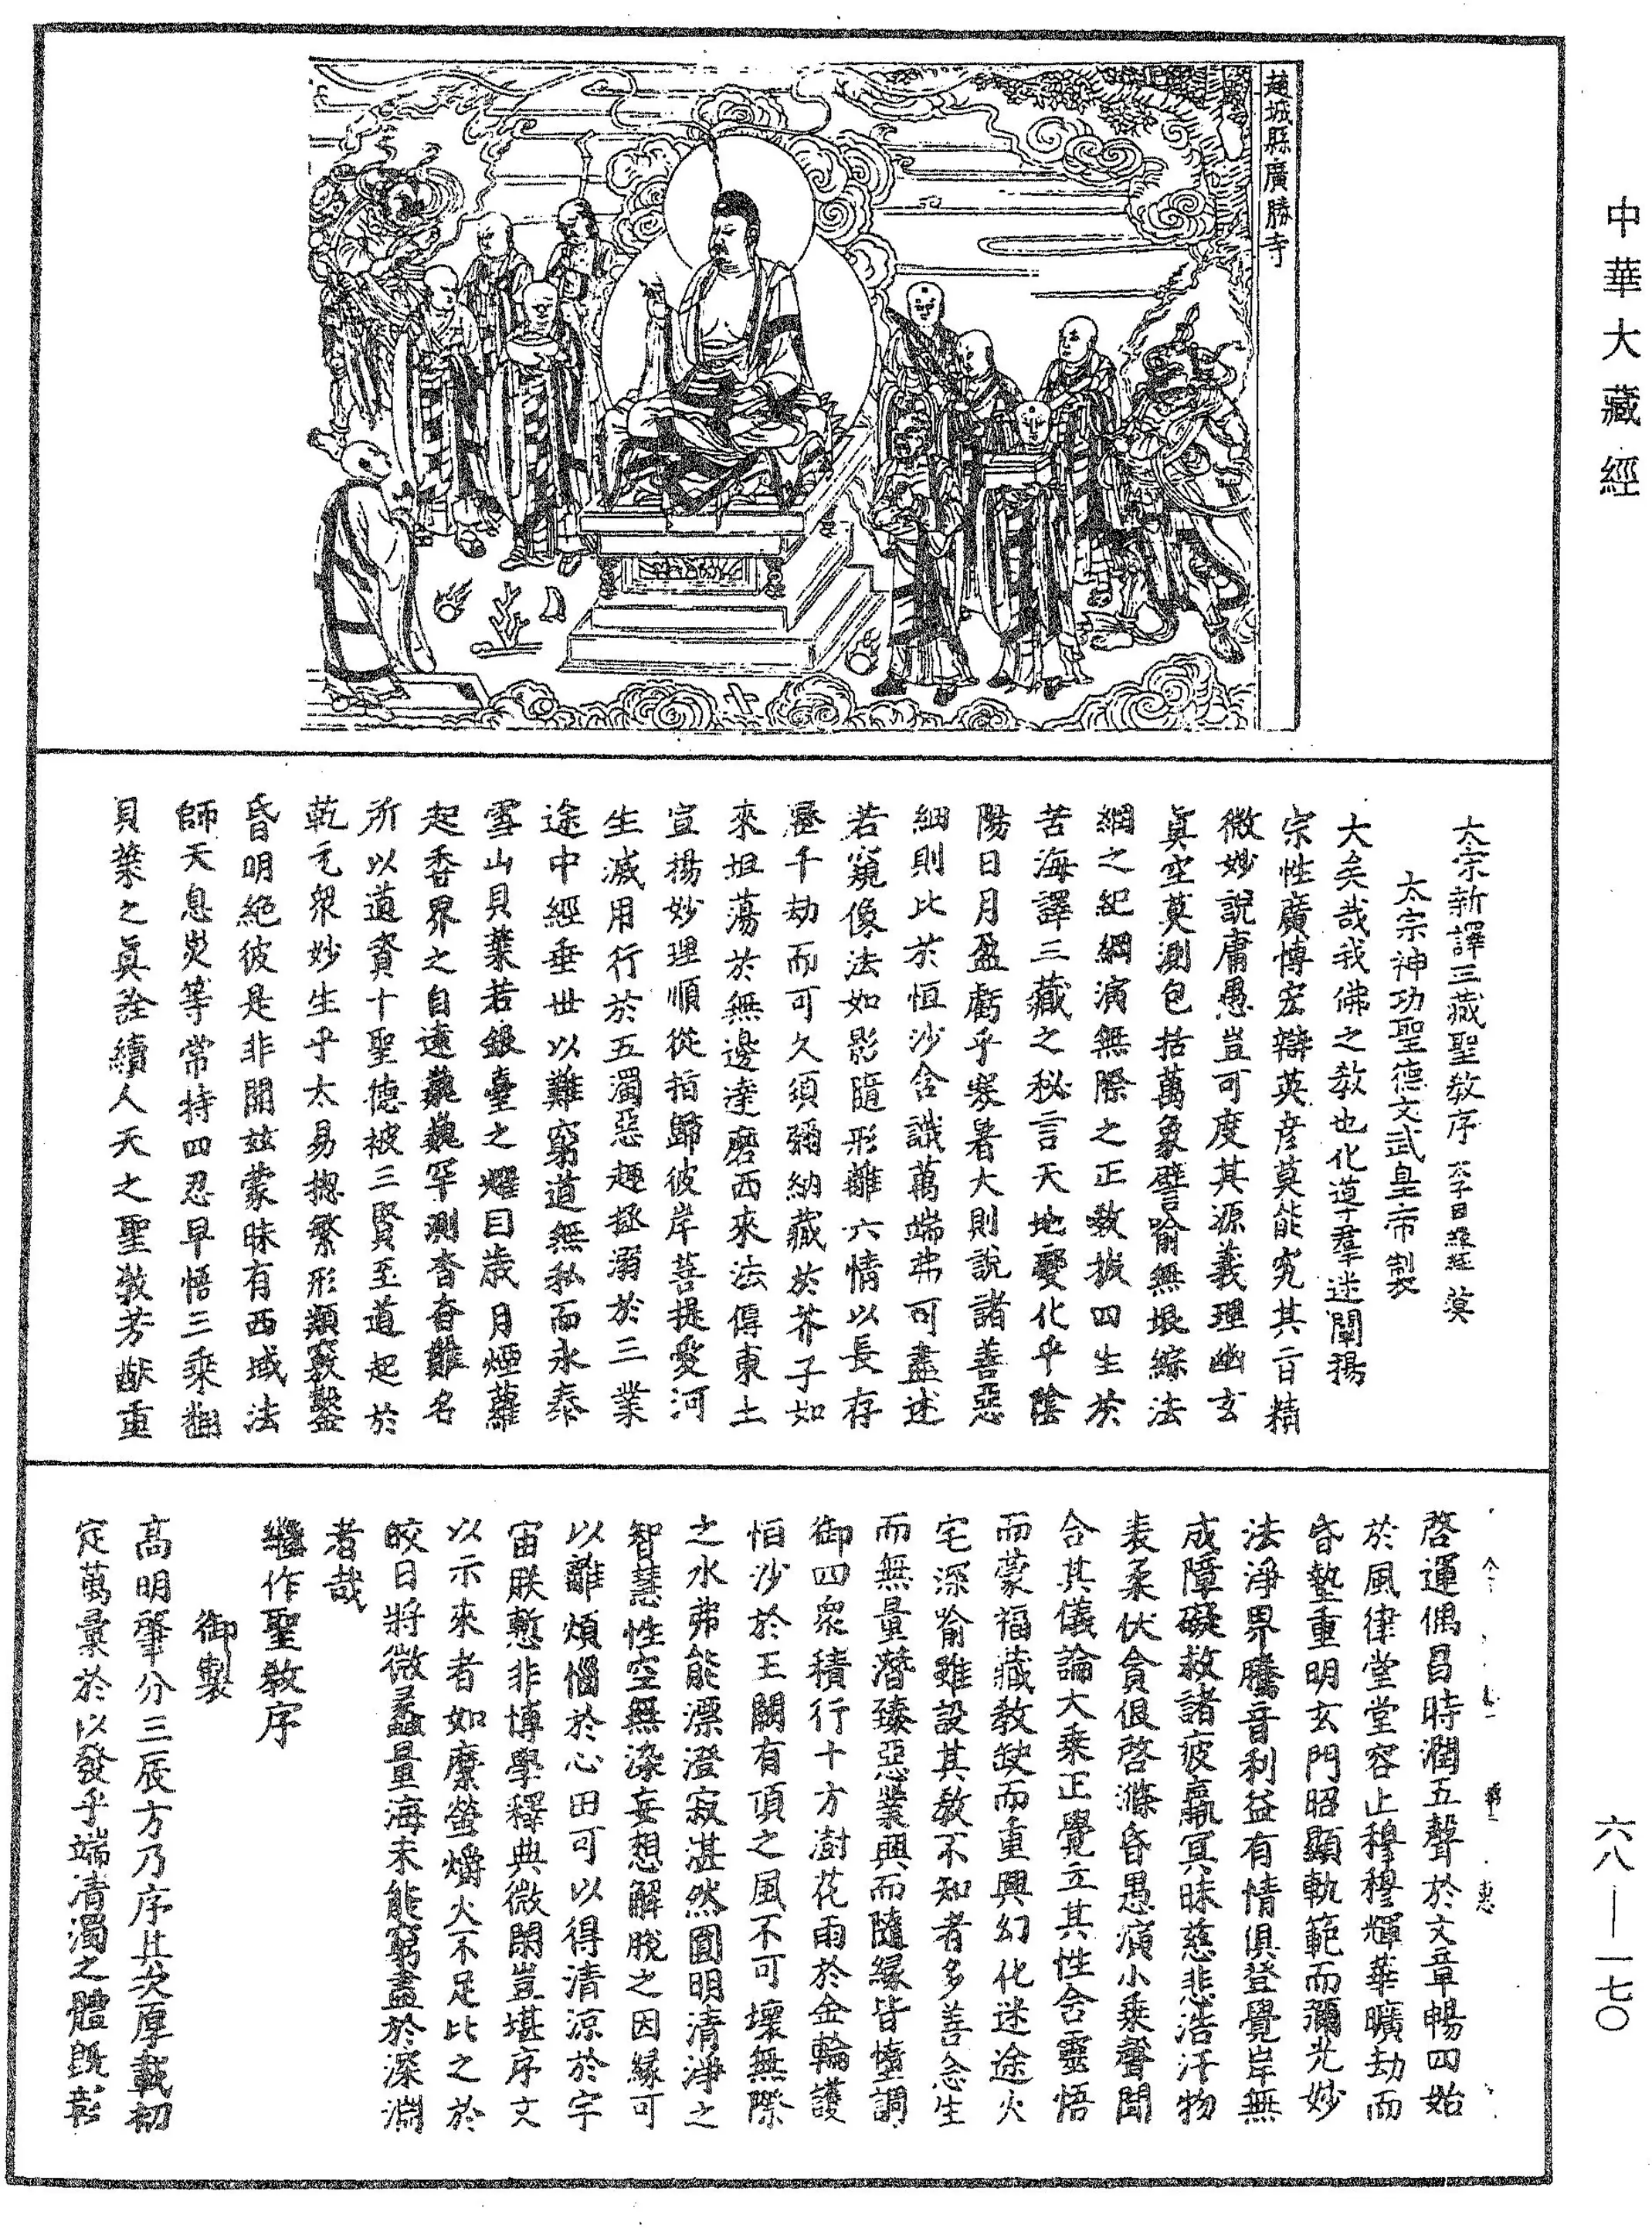 中華大藏經
六八—一七〇
趙城縣廣勝寺
太宗新譯三藏聖教序
太宗神功聖德文武皇帝製
大矣哉我佛之教也化導羣迷闡揚
宗性廣博宏辯英彥莫能究其旨精
微妙說庸愚豈可度其源義理幽玄
真空莫測包括萬象譬喻無垠綜法
網之紀綱演無際之正教拔四生於
苦海譯三藏之秘言天地變化乎陰
陽日月盈虧乎寒暑大則說諸善惡
細則比於恒沙含識萬端弗可盡述
若窺像法如影隨形離六情以長存
歷千劫而可久須彌納藏於芥子如
來坦蕩於無邊達磨西來法傳東土
宣揚妙理順從指歸彼岸菩提愛河
生滅用行於五濁惡趣拯溺於三業
途中經垂世以難窮道無私而永泰
雪山貝葉若銀臺之耀目歲月煙蘿
起香界之自遠巍巍罕測杳杳難名
所以道資十聖德被三賢至道起於
乾元衆妙生乎太易揔繁形類竅鑿
昏明絕彼是非開兹蒙昧有西域法
師天息災等常持四忍早悟三乘翻
貝葉之真詮續人天之聖教芳猷重
啓運偶昌時潤五聲於文章暢四始
於風律堂堂容止穆穆輝華曠劫而
昏墊重明玄門昭顯軌範而彌光妙
法淨界騰音利益有情俱登覺岸無
成障礙救諸疲羸冥昧慈悲浩汗物
表柔伏貪佷啓滌昏愚演小乘聲聞
合其儀論大乘正覺立其性含靈悟
而蒙福藏教缺而重興幻化迷途火
宅深喻雖設其教不知者多善念生
而無量潛臻惡業興而隨緣皆墮調
御四衆積行十方澍花雨於金輪護
恒沙於王闕有頂之風不可壞無際
之水弗能漂澄寂湛然圓明清淨之
智慧性空無染妄想解脫之因緣可
以離煩惱於心田可以得清涼於宇
宙朕慙非博學釋典微閑豈堪序文
以示來者如縻螢爝火不足比之於
皎日將微蠡量海未能窮盡於深淵
者哉
繼作聖教序
御製
高明肇分三辰方乃序其次厚載初
定萬彙於以發乎端清濁之體旣彰